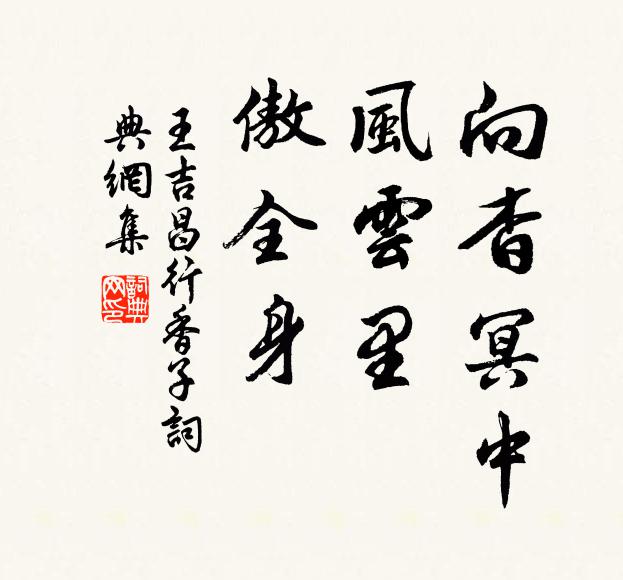 向杳冥中
風雲里
傲全身
王吉昌行香子詞
典網集
詞典网印